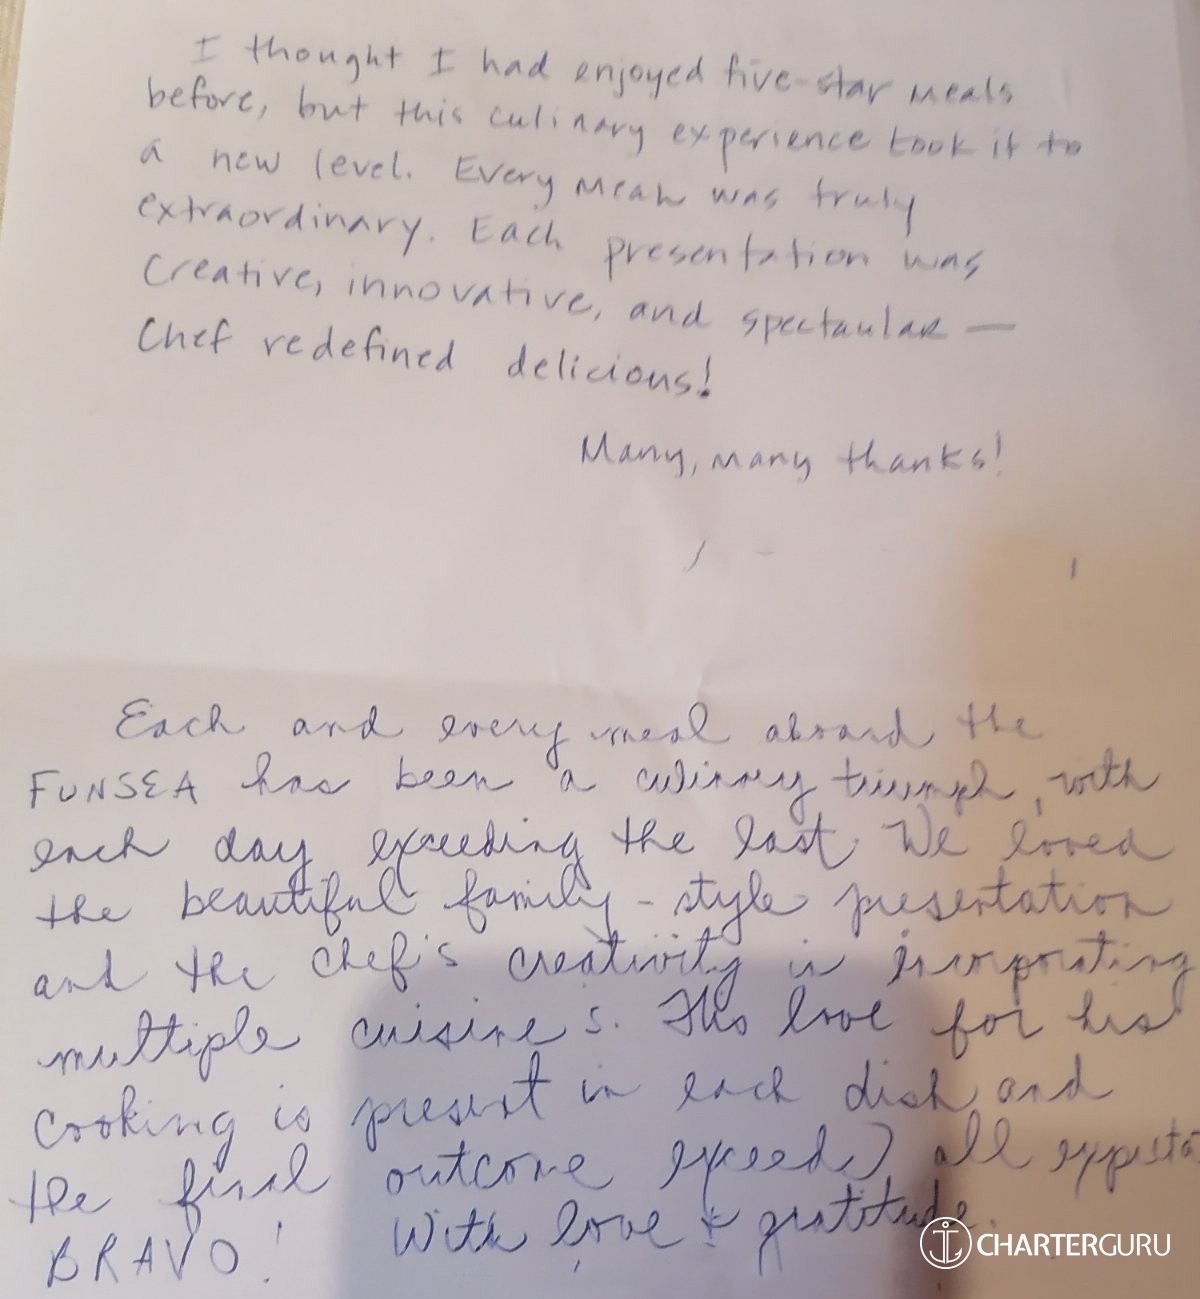 I thought I had enjoyed five-star meals
before, but this culinary experience took it to
a new level. Every meal was truly
extraordinary. Each presentation was
Creative, innovative, and spectaular —
Chef redefined delicious!
Many, many thanks!
Each and every meal aboard the
FUNSEA has been a culinary triumph, with
each day exceeding the last. We loved
the beautiful family-style presentation
and the chef's creativity in incorporating
multiple cuisines. The love for his
cooking is present in each dish and
the final outcome exceeds all expecta
BRAVO! With love & gratitude.
CHARTERGURU